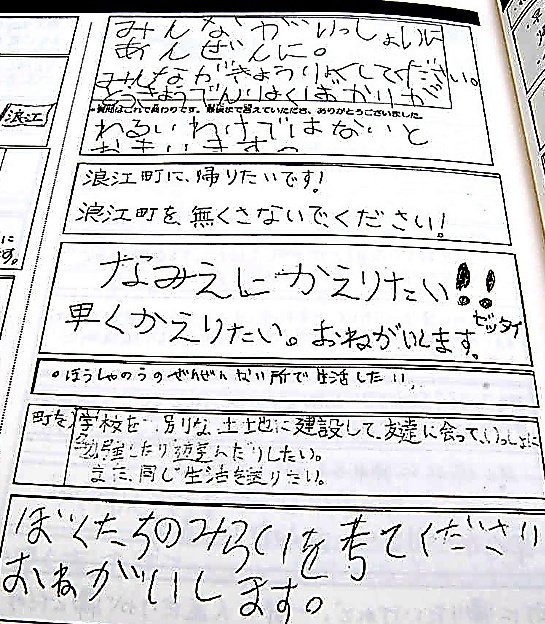 みんながいっしょいに
あんぜんに。
みんながきょうりょくしてください。
とうきょうでんりょくばかりが
●質問はこれで終わりです。最後まで答えていただき、ありがとうございました
わるいわけではないと
おもいます。
浪江
浪江町に、帰りたいです!
浪江町を、無くさないで、ください!
なみえにかえりたい!!
ゼッタイ
早くかえりたい。おねがいします。
。ほうしゃのうのぜんぜんない所で生活したい。
町を、学校を、別な土地に建設して、友達に会って、いっしょに
勉強したり遊んだりしたい。
また、同じ生活を送りたい。
ぼくたちのみらいを考てください
おねがいします。